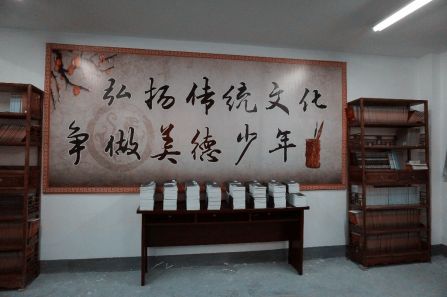 弘扬传统文化
争做美德少年